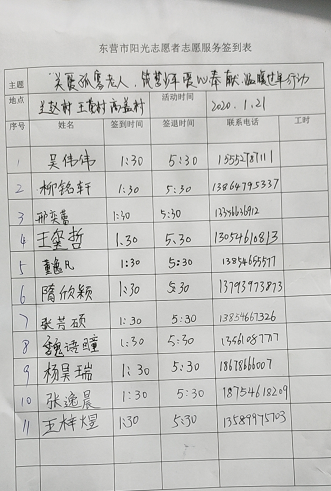 东营市阳光志愿者志愿服务签到表
主题 关爱孤寡老人 筑梦 爱心奉献 温暖过年行动
地点 王赵村 王 村 村 活动时间 2020.1.21
序号 姓名 签到时间 签退时间 联系电话 工时
1 吴伟伟 1:30 5:30
2 柳铭轩 1:30 5:30 13864795337
3 邢奕 1:30 5:30
4 王 哲 1:30 5:30 13054610813
5 凡 1:30 5:30 13854655577
6 隋欣颖 1:30 5:30 13793973873
7 张芳硕 1:30 5:30 13854667326
8 魏诗瞳 1:30 5:30
9 杨昊瑞 1:30 5:30 18678666007
10 张逸晨 1:30 5:30 18754618209
11 王梓煜 1:30 5:30 13589975703